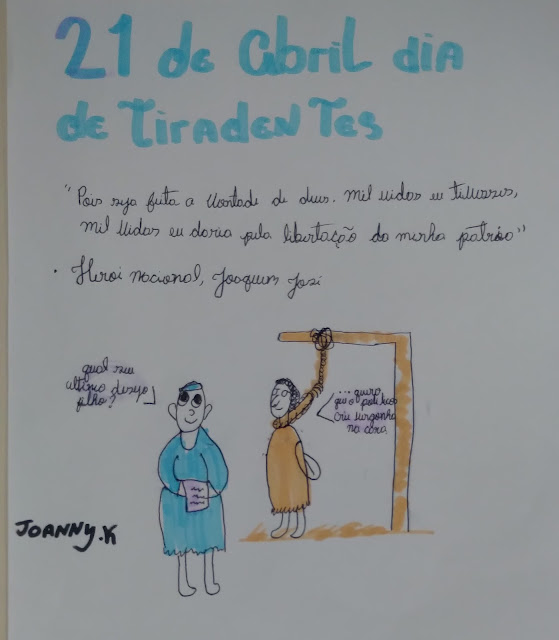 21 de abril dia
de Tiradentes
"Pois seja feita a vontade de deus. mil vidas eu tivesses,
mil vidas eu daria pela libertação da minha pátria"
. Heroi nacional, Joaquim José
qual seu
ultimo desejo
filho?
... quero
que o politicos
cria vergonha
na cara
JOANNY.K